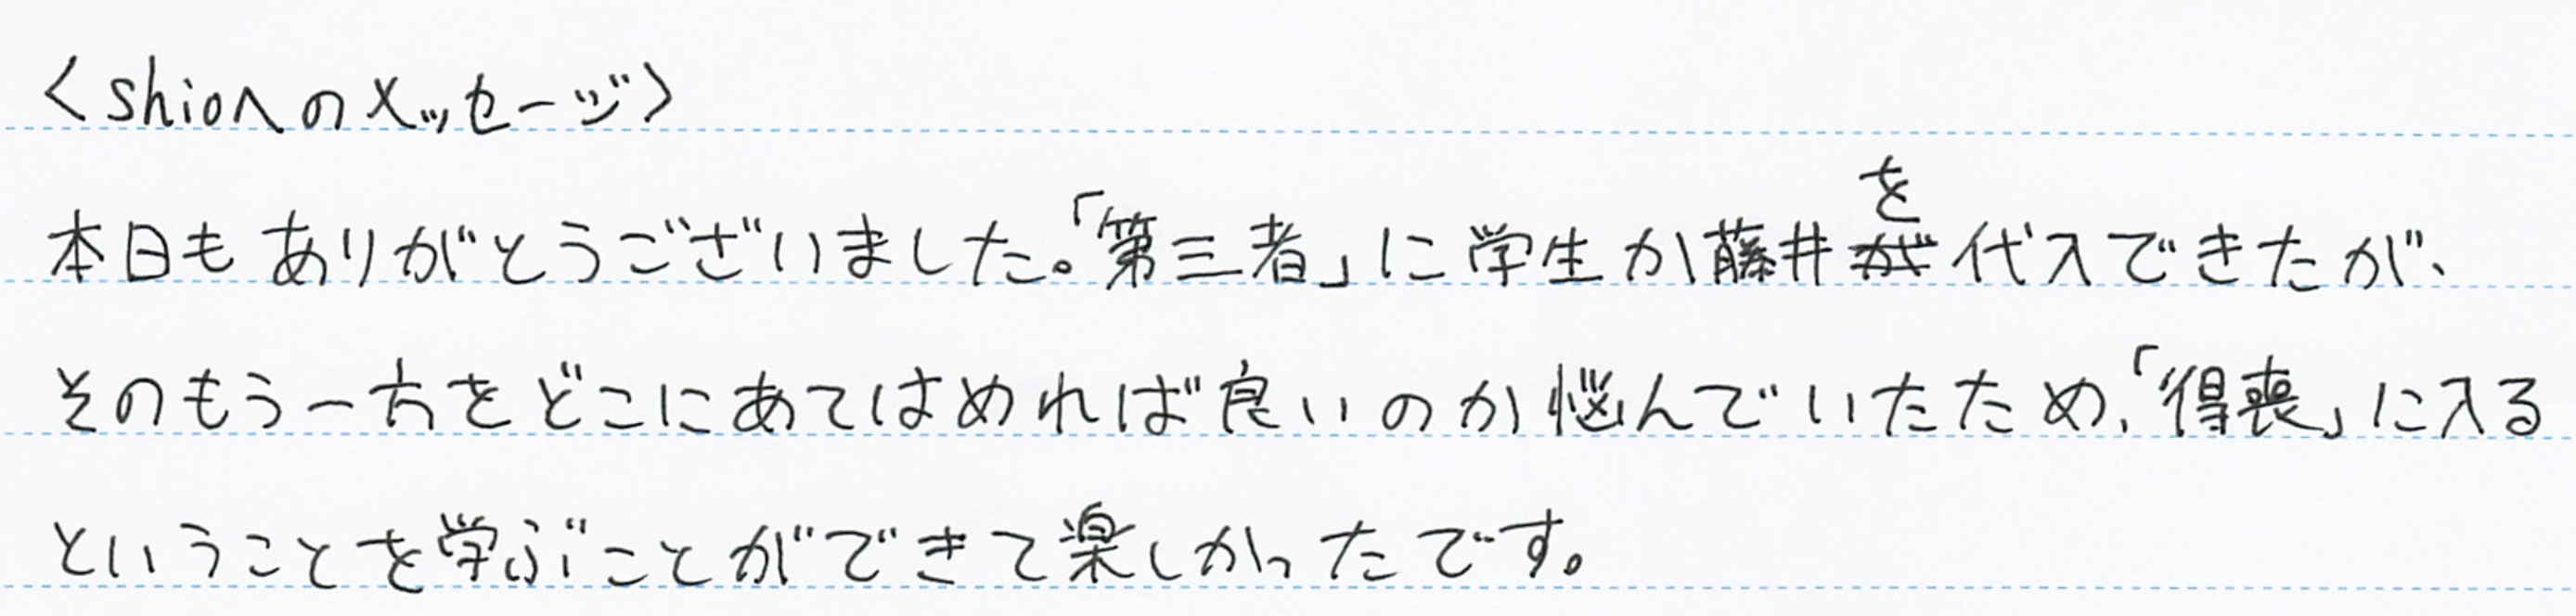 <shioへのメッセージ>
本日もありがとうございました。「第三者」に学生か藤井を代入できたが、
そのもう一方をどこにあてはめれば良いのか悩んでいたため、「得喪」に入る
ということを学ぶことができて楽しかったです。